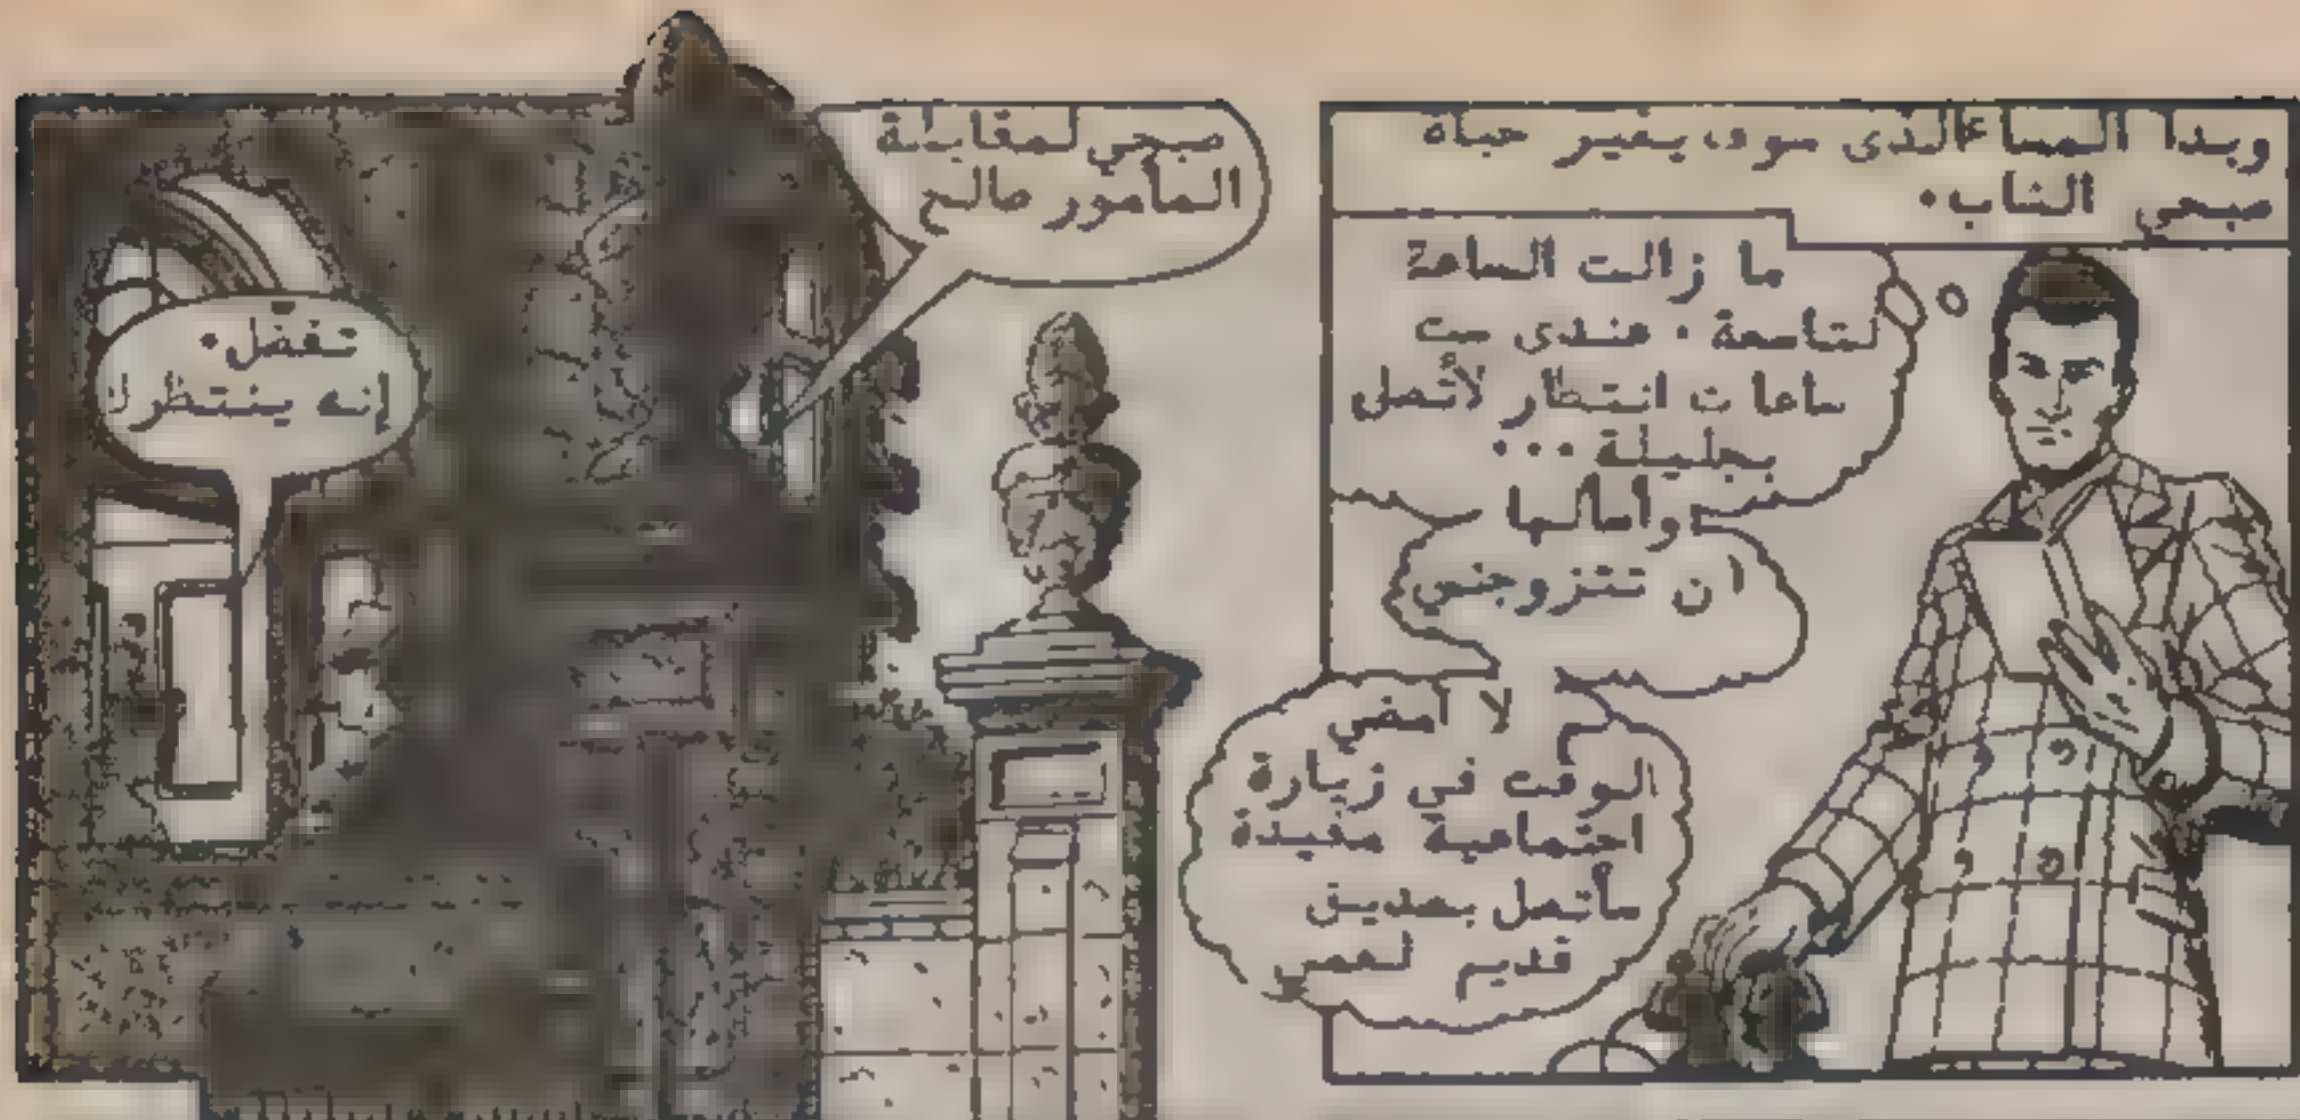 وبدا المساء الذى سوف يغير حياة
صبحي الشاب.
ما زالت الساعة
لتاسعة. عندى ست
ساعات انتظار لأتصل
بجليلة ...
وأسألها
ان تتزوجني
لا أمضي
الوقت في زيارة
اجتماعية مفيدة
سأتصل بصديق
قديم لعمي
صبحي لمقابلة
المأمور صالح
تفضل.
إنه ينتظرك